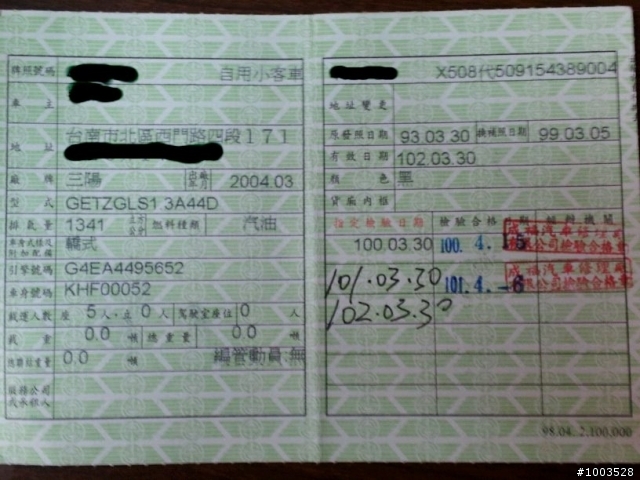 牌照號碼 自用小客車
車主
地址 台南市北區西門路四段171
廠牌 三陽 出廠年月 2004.03
型式 GETZGLS1.3A44D
排氣量 1341 立方公分 燃料種類 汽油
車身式樣及附加配備 轎式
引擎號碼 G4EA4495652
車身號碼 KHF00052
載運人數 座 5人、立0人 駕駛室座位0 人
載重 0.0 噸 總重量 0.0 噸
總聯結重量 0.0 噸 編管動員:無
X508代509154389004
地址變更
原發照日期 93.03.30 換補照日期 99.03.05
有效日期 102.03.30
顏色 黑
貨廂內框
指定檢驗日期 檢驗合格
100.03.30 100.4.15 成福汽車修理 限公司檢驗合格章
101.03.30 101.4.-6 成福汽車修理 限公司檢驗合格章
102.03.30
98.04. 2,100,000
#1003528